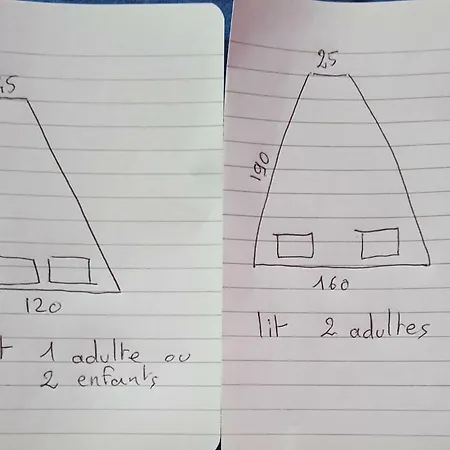 25
190
160
lit 2 adultes
120
1 adulte ou
2 enfants